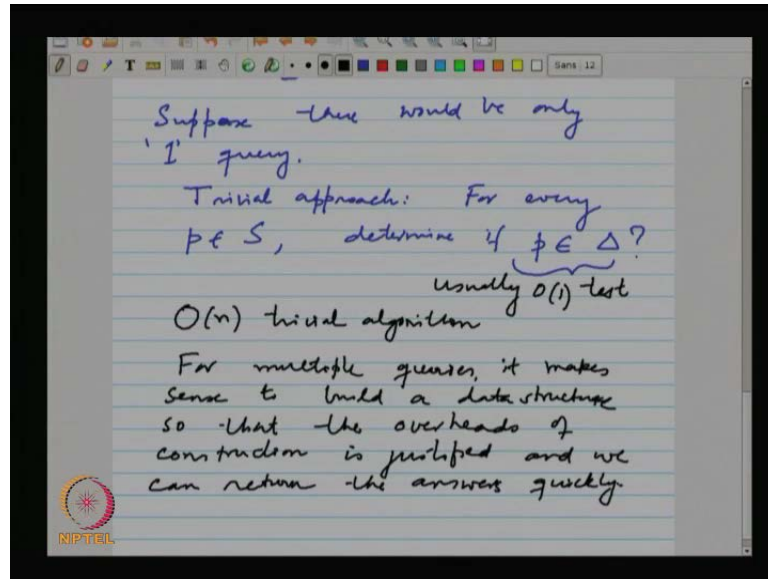 Sans 12
Suppose there would be only
'1' query.
Trivial approach: For every
p ∈ S, determine if p ∈ Δ?
usually O(1) test
O(n) trivial algorithm
For multiple queries, it makes
sense to build a data structure
so that the overheads of
construction is justified and we
can return the answers quickly.
NPTEL